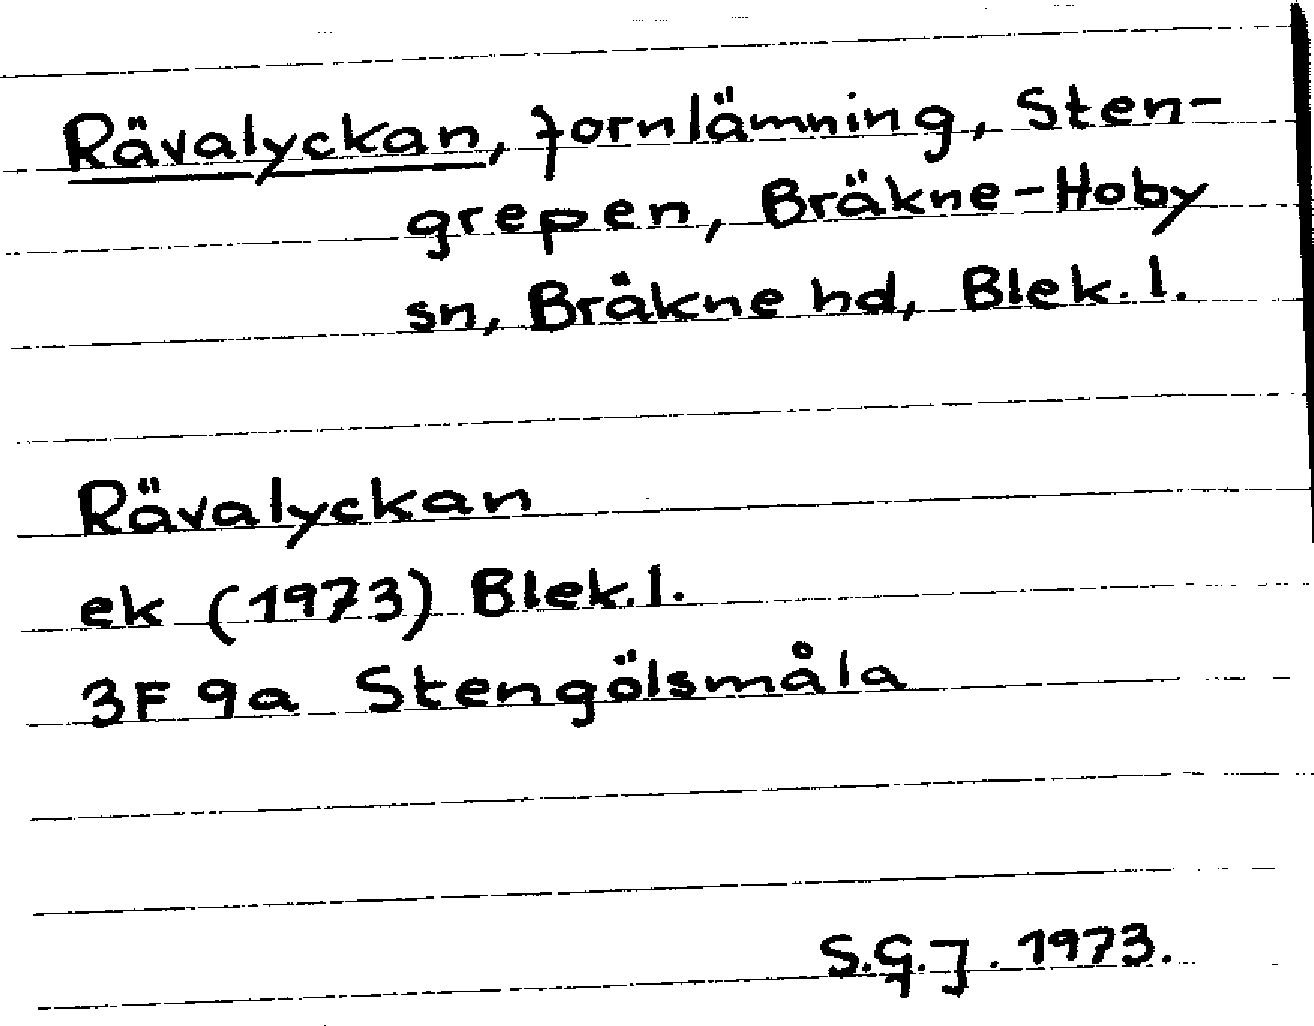 Rävalyckan, fornlämning, Sten-
grepen, Bräkne-Hoby
sn, Bräkne hd, Blek. l.
Rävalyckan
ek (1973) Blek. l.
3F 9a Stengölsmåla
S.G.J. 1973.